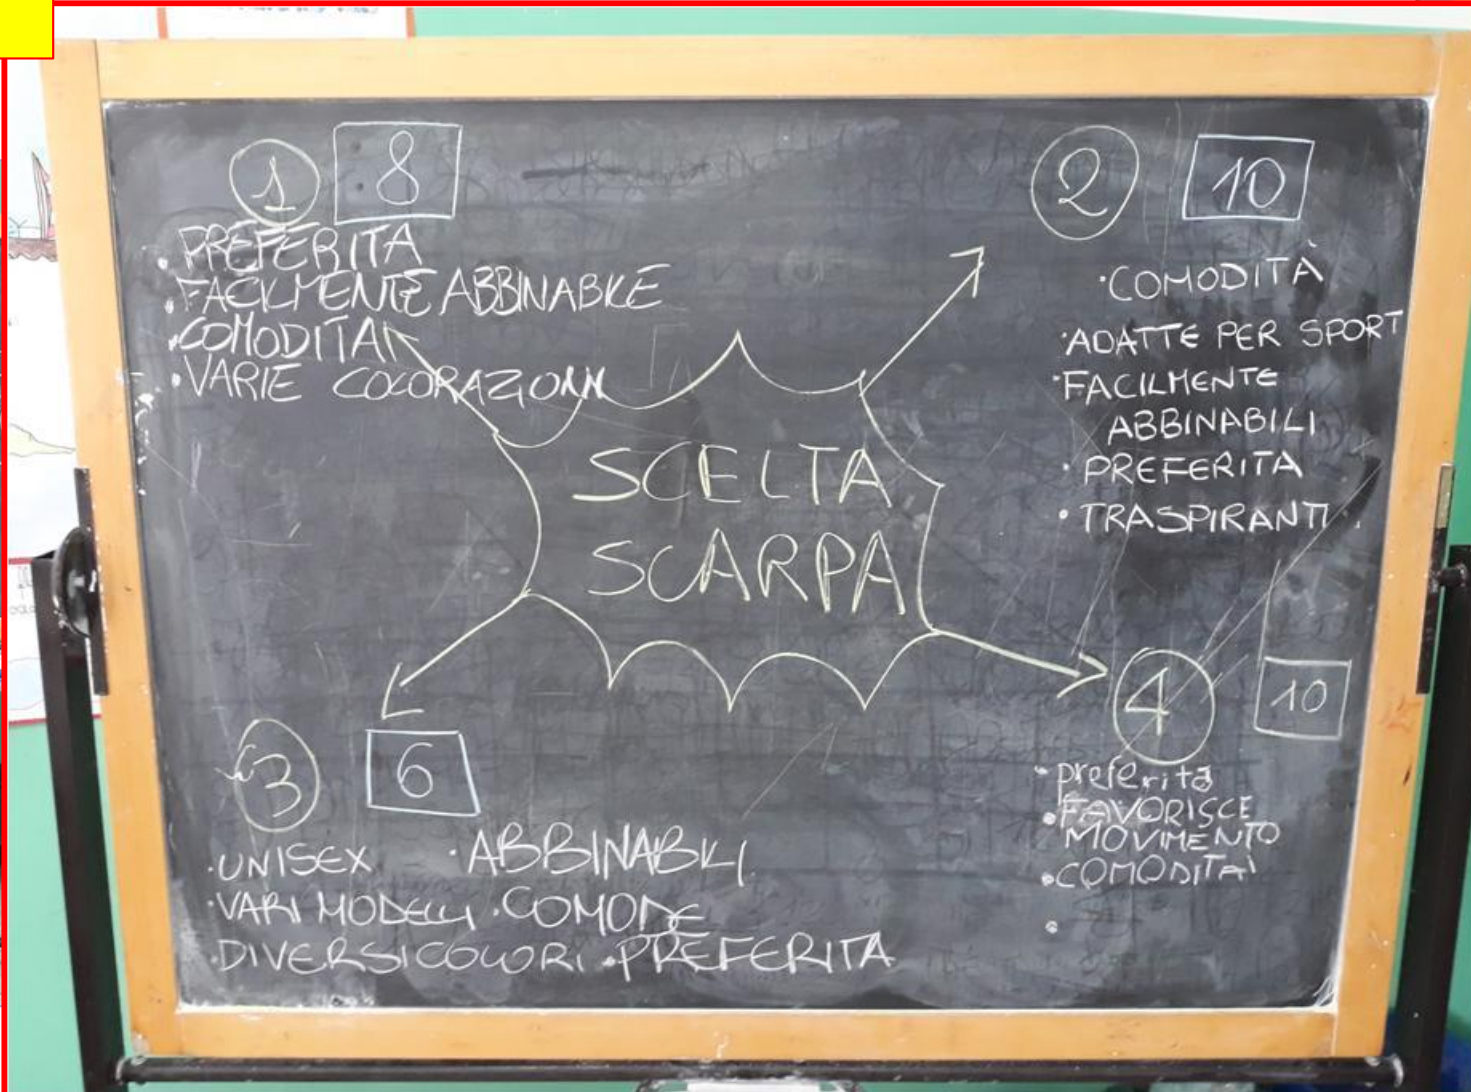 1 8
• PREFERITA
• FACILMENTE ABBINABILE
• COMODITA'
• VARIE COLORAZIONI
2 10
• COMODITÀ
• ADATTE PER SPORT
• FACILMENTE
ABBINABILI
• PREFERITA
• TRASPIRANTI
SCELTA
SCARPA
3 6
• UNISEX • ABBINABILI
• VARI MODELLI • COMODE
• DIVERSI COLORI • PREFERITA
4 10
• preferita
• FAVORISCE
MOVIMENTO
• COMODITA'
•